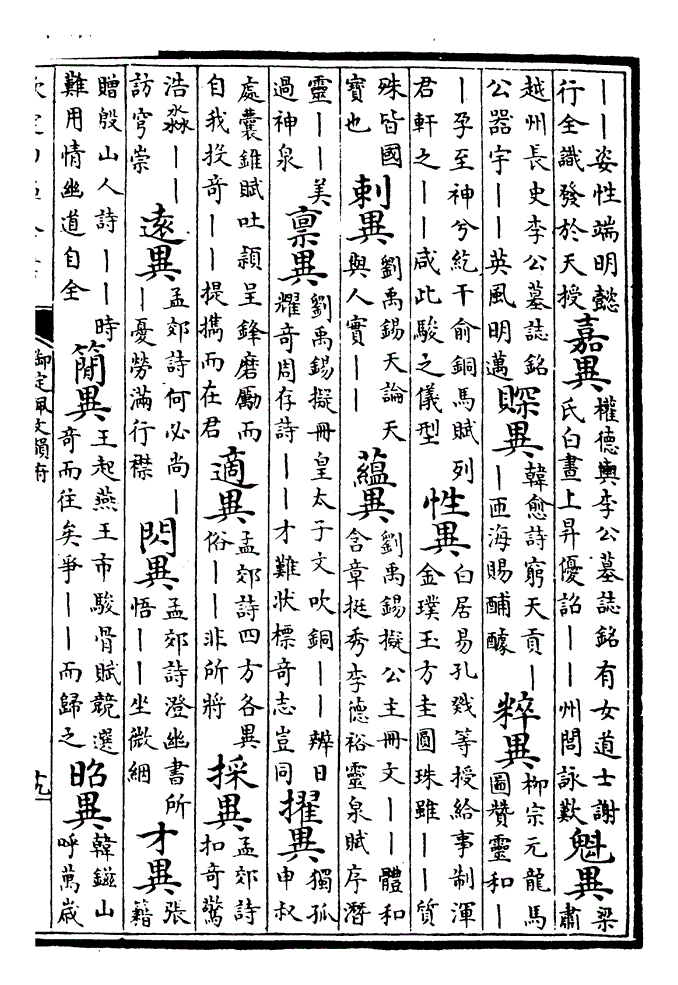 ——姿性端明懿行全識發於天授嘉異權德輿李公墓誌銘有女道士謝氏白晝上昇優詔——州閭詠歎魁異梁肅
越州長史李公墓誌銘公器宇——英風明邁賝異韓愈詩窮天貢——匝海賜酺醵粹異柳宗元龍馬圖贊靈和—
—孕至神兮紇干俞銅馬賦列君軒之——咸此駿之儀型性異白居易孔戣等授給事制渾金璞玉方圭圓珠雖——質
殊皆國寶也刺異劉禹錫天論天與人實——蘊異劉禹錫擬公主冊文——體和含章挺秀李德裕靈泉賦序潛
靈——美過神泉稟異劉禹錫擬冊皇太子文吹銅——辨日耀奇周存詩——才難狀標奇志豈同擢異獨孤申叔
處囊錐賦吐穎呈鋒磨勵而自我投奇——提攜而在君適異孟郊詩四方各異俗——非所將採異孟郊詩扣奇驚
浩淼——訪穹崇遠異孟郊詩何必尚——憂勞滿行襟閃異孟郊詩澄幽書所悟——坐微綱才異張籍
贈殷山人詩——時難用情幽道自全簡異王起燕王市駿骨賦競選奇而往矣爭——而歸之昭異韓鎰山呼萬歲
御定佩文韻府
十九